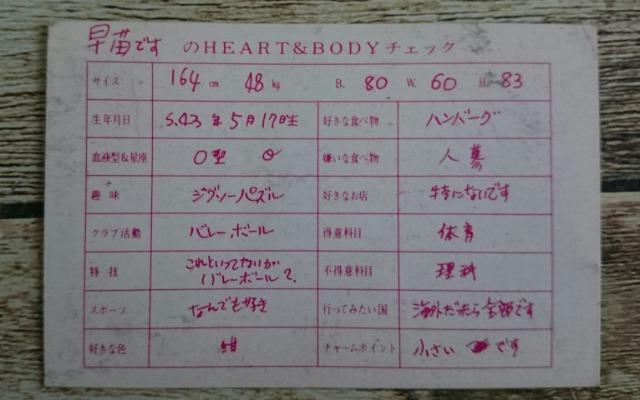 早苗です のHEART&BODYチェック
サイズ 164 cm 48 kg B. 80 W. 60 H. 83
生年月日 S.43年5月17日生 好きな食べ物 ハンバーグ
血液型&星座 O型 嫌いな食べ物 人蔘
趣味 ジグソーパズル 好きなお店 特にないです
クラブ活動 バレーボール 得意科目 体育
特技 これといってないがバレーボール?. 不得意科目 理科
スポーツ なんでも好き 行ってみたい国 海外だったら全部です
好きな色 紺 チャームポイント 小さい です